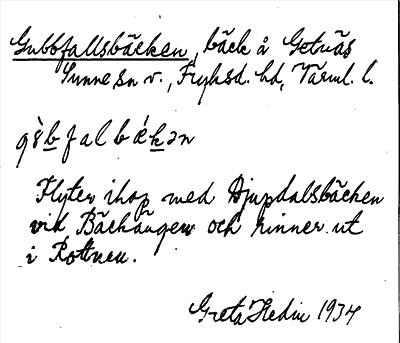 Gubbfallsbäcken, bäck å Getnäs
Sunne sn v., Fryksd. hd, Värml. l.
gò̀bfalbǽkən
Flyter ihop med Djupdalsbäcken
vid Bäckängen och rinner ut
i Rottnen.
Greta Hedin 1934